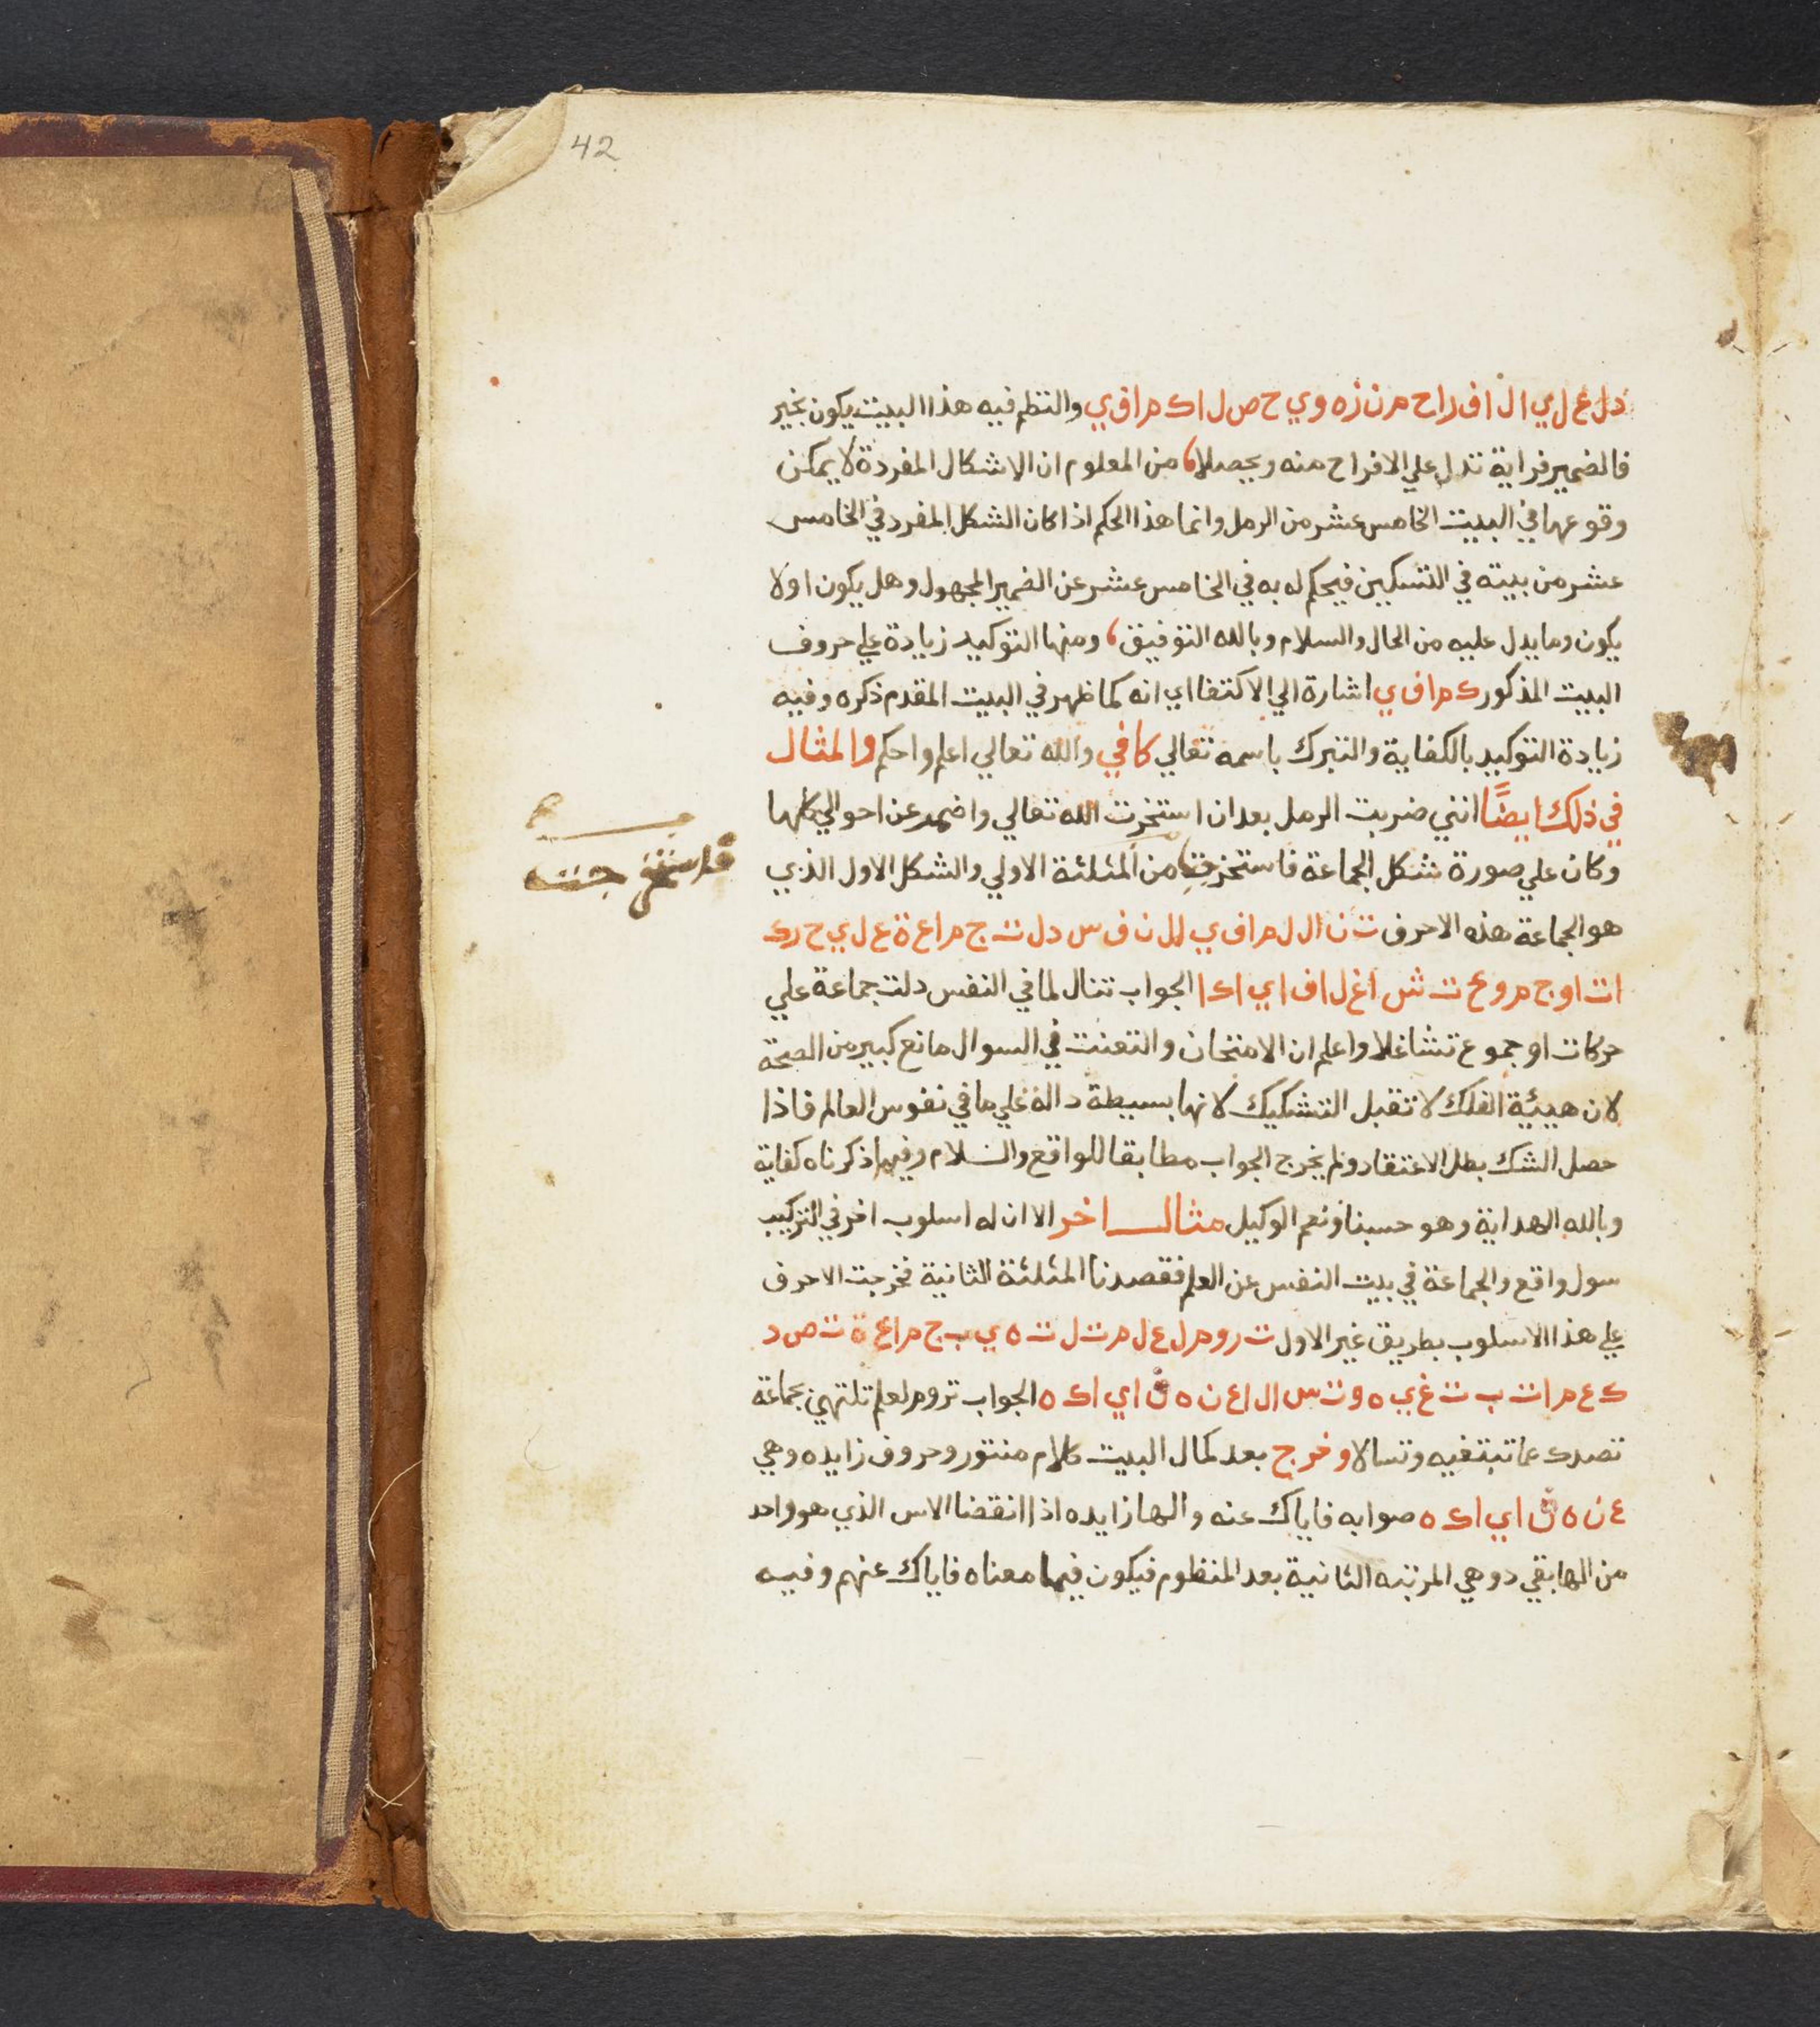 42
د ل ع ل ي ا ل ا ف ر ا ح م ن ز ه و ي ح ص ل ا ك م ا ف ي والنظم فيه هذا البيت يكون بخير
فالضمير فراية تدل علي الافراح منه ويحصلا، من المعلوم ان الاشكال المفردة لا يمكن
وقوعها في البيت الخامس عشر من الرمل وانما هذا الحكم اذا كان الشكل المفرد في الخامس
عشر من بيته في التسكين فيحكم له به في الخامس عشر عن الضمير المجهول وهل يكون اولا
يكون وما يدل عليه من الحال والسلام وبالله التوفيق، ومنها التوكيد زيادة علي حروف
البيت المذكور ك م ا ف ي اشارة الي الاكتفا اي انه كما ظهر في البيت المقدم ذكره وفيه
زيادة التوكيد بالكفاية والتبرك باسمه تعالي كافي والله تعالي اعلم واحكم والمثال
في ذلك ايضًا انني ضربت الرمل بعد ان استخرت الله تعالي واضمر عن احوالي كلها
وكان علي صورة شكل الجماعة فاستخرجت من المثلثة الاولي والشكل الاول الذي
فاستخرجت
هو الجماعة هذه الاحرف ت ن ا ل ل م ا ف ي ا ل ن ف س د ل ت ج م ا ع ة ع ل ي ح ر ك
ا ت ا و ج م و ع ت ش ا غ ل ا ف ا ي ا ك ا الجواب تنال لما في النفس دلت جماعة علي
حركات او جموع تشاغلا واعلم ان الامتحان والتعنت في السوال مانع كبير من الصحة
لان هيئة الفلك لا تقبل التشكيك لانها بسيطة دالة علي ما في نفوس العالم فاذا
حصل الشك بطل الاعتقاد ولم يخرج الجواب مطابقا للواقع والسلام وفيما ذكرناه كفاية
وبالله الهداية وهو حسبنا ونعم الوكيل مثال اخر الا ان له اسلوب اخر في التركيب
سول واقع والجماعة في بيت النفس عن العلم فقصدنا المثلثة الثانية فخرجت الاحرف
علي هذا الاسلوب بطريق غير الاول ت ر و م ل ع ل م ت ل ت ه ي ب ج م ا ع ة ت ص د
ك ع م ا ت ب ت غ ي ه و ت س ا ل ا ع ن ه ف ا ي ا ك ه الجواب تروم لعلم تلتهي بجماعة
تصدك عما تبتغيه وتسالا وخرج بعد كمال البيت كلام منثور وحروف زايده وهي
ع ن ه ف ا ي ا ك ه صوابه فاياك عنه والها زايده اذا انقضا الاس الذي هو واحد
من الها بقي د وهي المرتبه الثانية بعد المنظوم فيكون فيما معناه فاياك عنهم وفيه